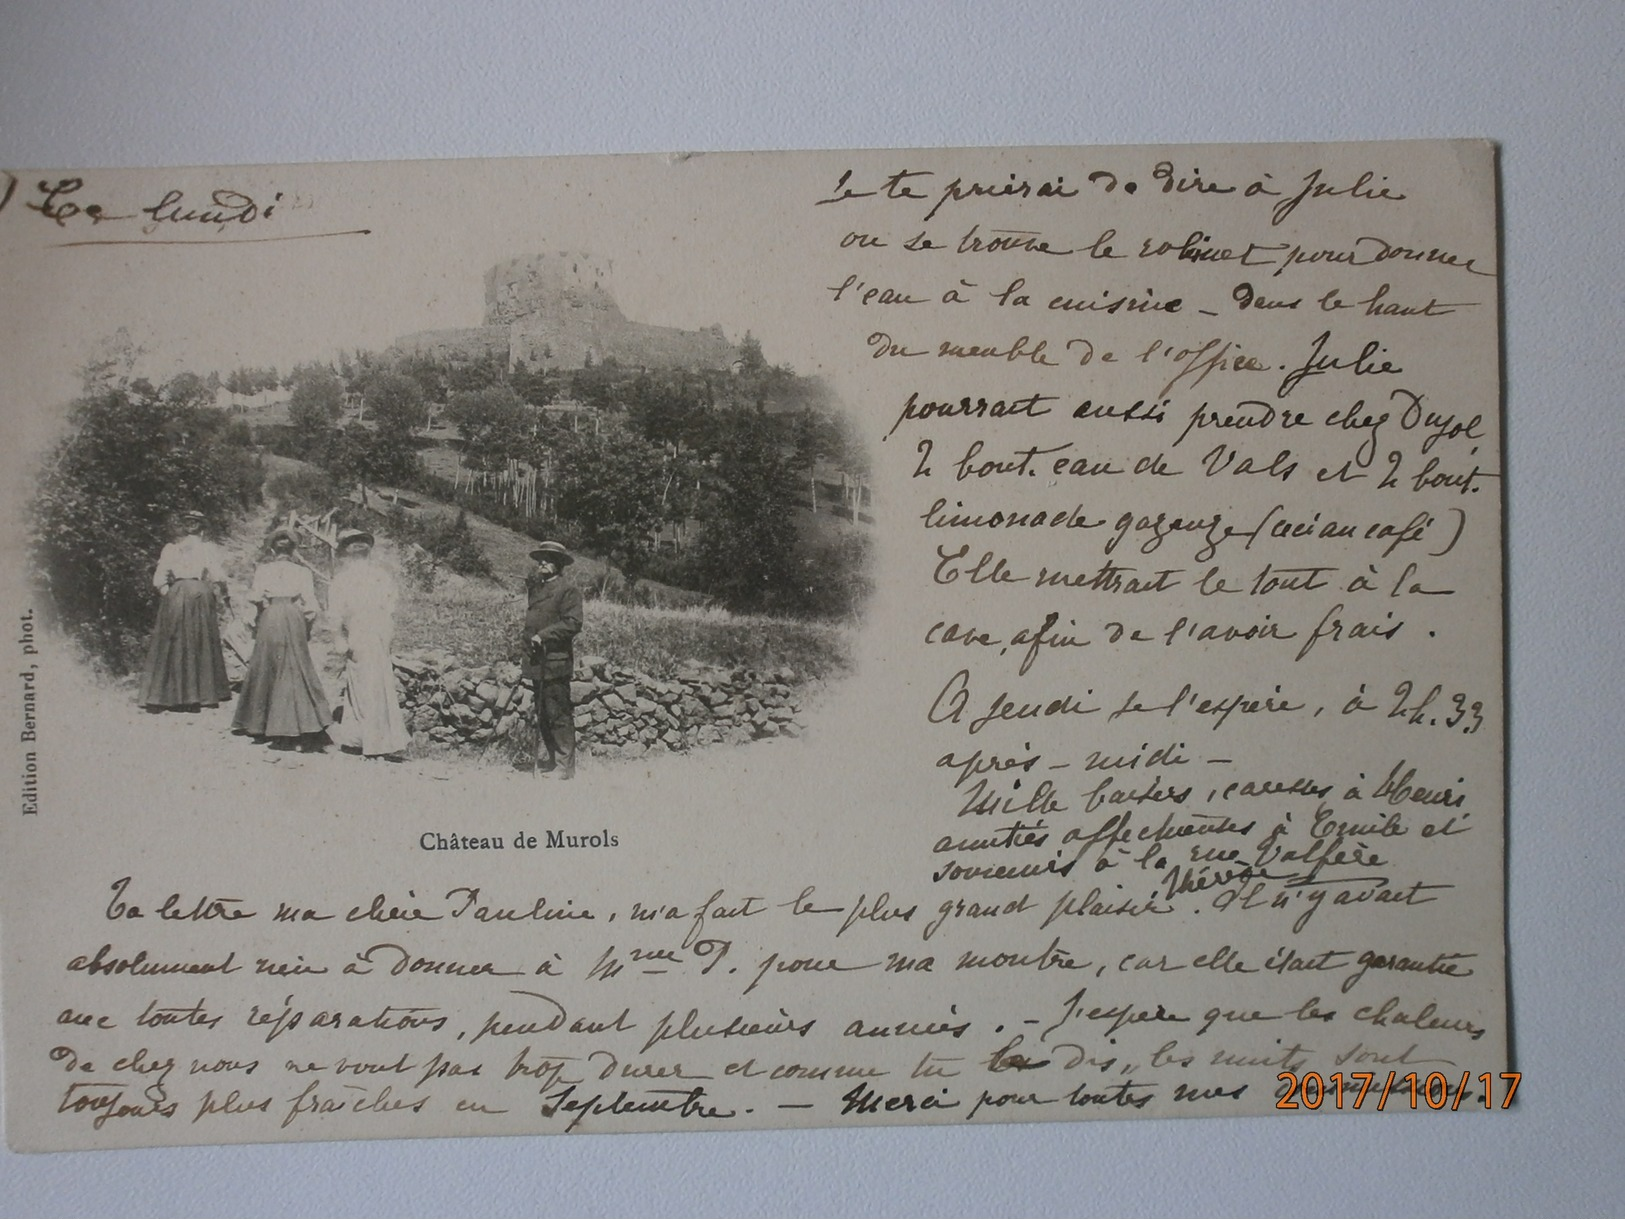 Ce lundi
Ta lettre ma chère Pauline, m'a fait le plus grand plaisir. Il n'y avait
absolument rien à donner à Mme P. pour ma montre, car elle était garantie
avec toutes réparations, pendant plusieurs années. - J'espère que les chaleurs
de chez nous ne vont pas trop durer et comme tu le dis, les nuits sont
toujours plus fraîches en Septembre. - Merci pour toutes mes
Je te prierai de dire à Julie
ou se trouve le robinet pour donner
l'eau à la cuisine - dans le haut
du meuble de l'office. Julie
pourrait aussi prendre chez Dujol
2 bout. eau de Vals et 2 bout.
limonade gazeuze (ceci au café)
Elle mettrait le tout à la
cave, afin de l'avoir frais.
A jeudi je l'espère, à 2h.33
après-midi -
Mille baisers, caresses à Henri
amitiés affectueuses à Emile et
souvenirs à la rue Valfère
Thérèse
Château de Murols
Edition Bernard, phot.
2017/10/17